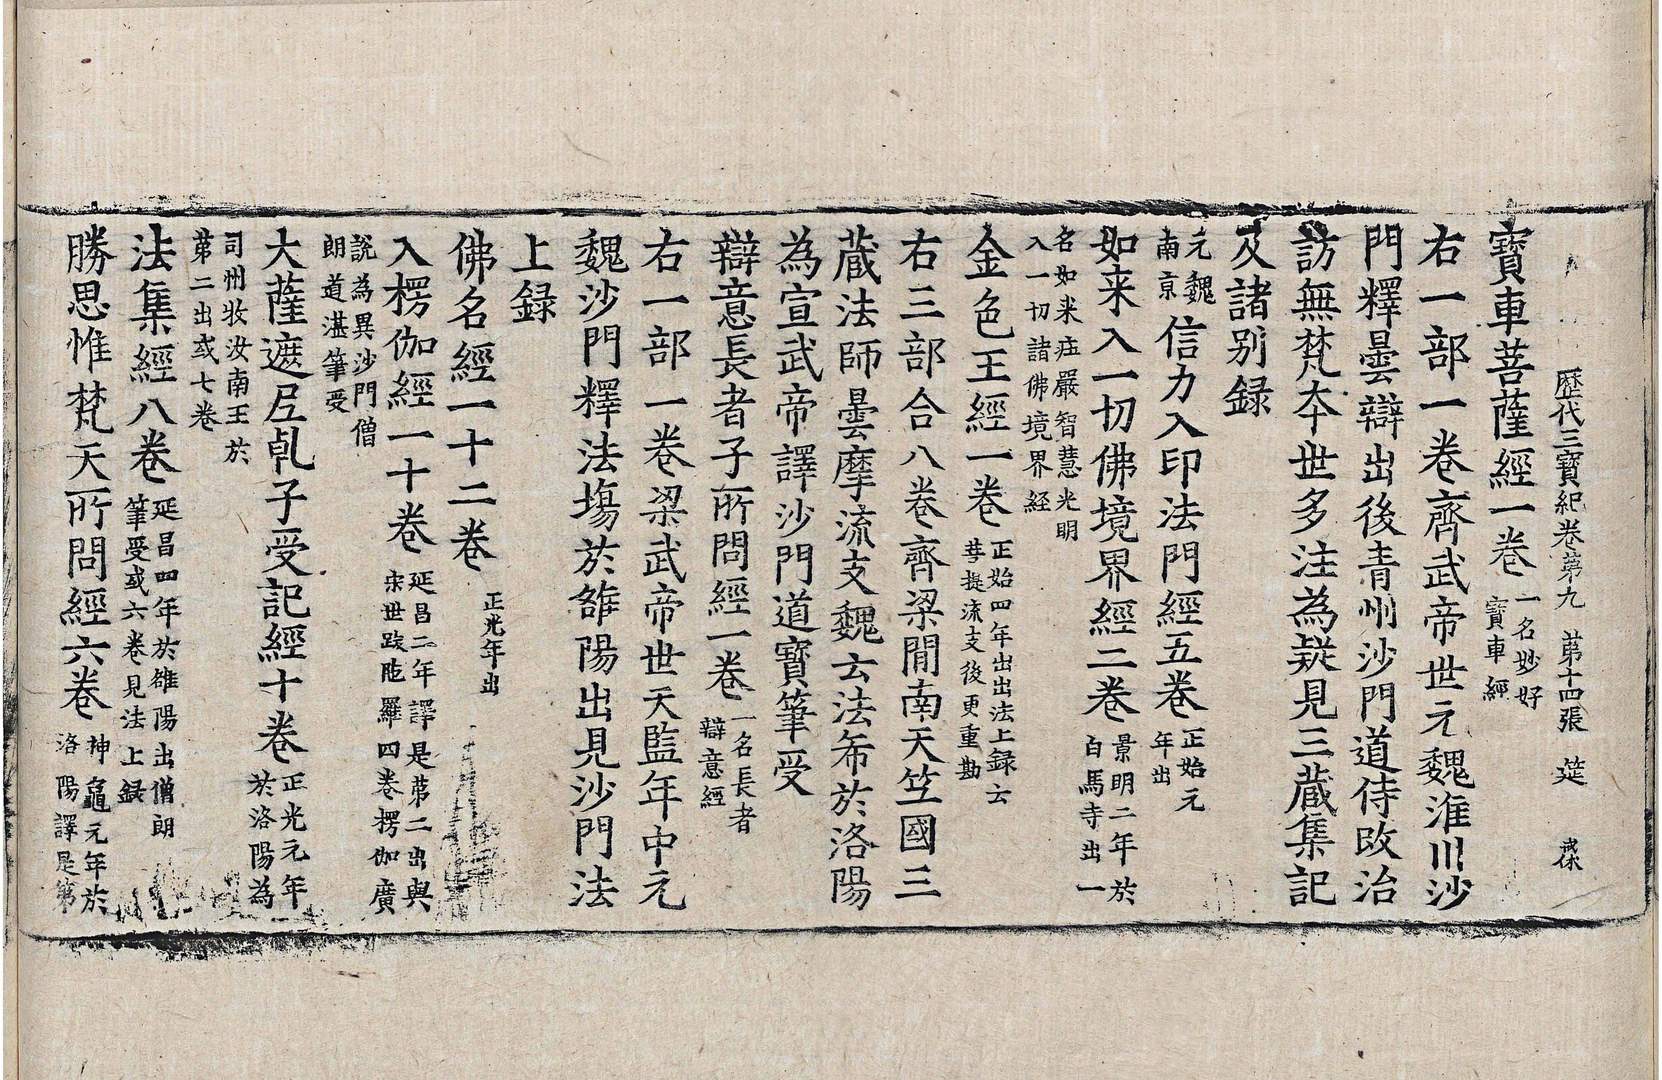 歷代三寶紀卷第九 第十四張 筵
寶車菩薩經一卷 一名妙好寶車經
右一部一卷齊武帝世元魏淮川沙
門釋曇辯出後青州沙門道侍改治
訪無梵夲世多注為疑見三藏集記
及諸别錄
元魏南京 信力入印法門經五卷 正始元年出
如来入一切佛境界經二卷 景明二年於白馬寺出一
名如来庄嚴智慧光明入一切諸佛境界經
金色王經一卷 正始四年出出法上録云菩提流支後更重勘
右三部合八卷齊梁間南天竺國三
藏法師曇摩流支魏云法希於洛陽
為宣武帝譯沙門道寶筆受
辯意長者子所問經一卷 一名長者辯意經
右一部一卷梁武帝世天監年中元
魏沙門釋法場於雒陽出見沙門法
上録
佛名經一十二卷 正光年出
入楞伽經一十卷 延昌二年譯是第二出與宋世跋陁羅四卷楞伽廣
說為異沙門僧朗道湛筆受
大薩遮尼乹子受記經十卷 正光元年於洛陽為
司州牧汝南王於第二出或七卷
法集經八卷 延昌四年於雒陽出僧朗筆受或六卷見法上録
勝思惟梵天所問經六卷 神龜元年於洛陽譯是第